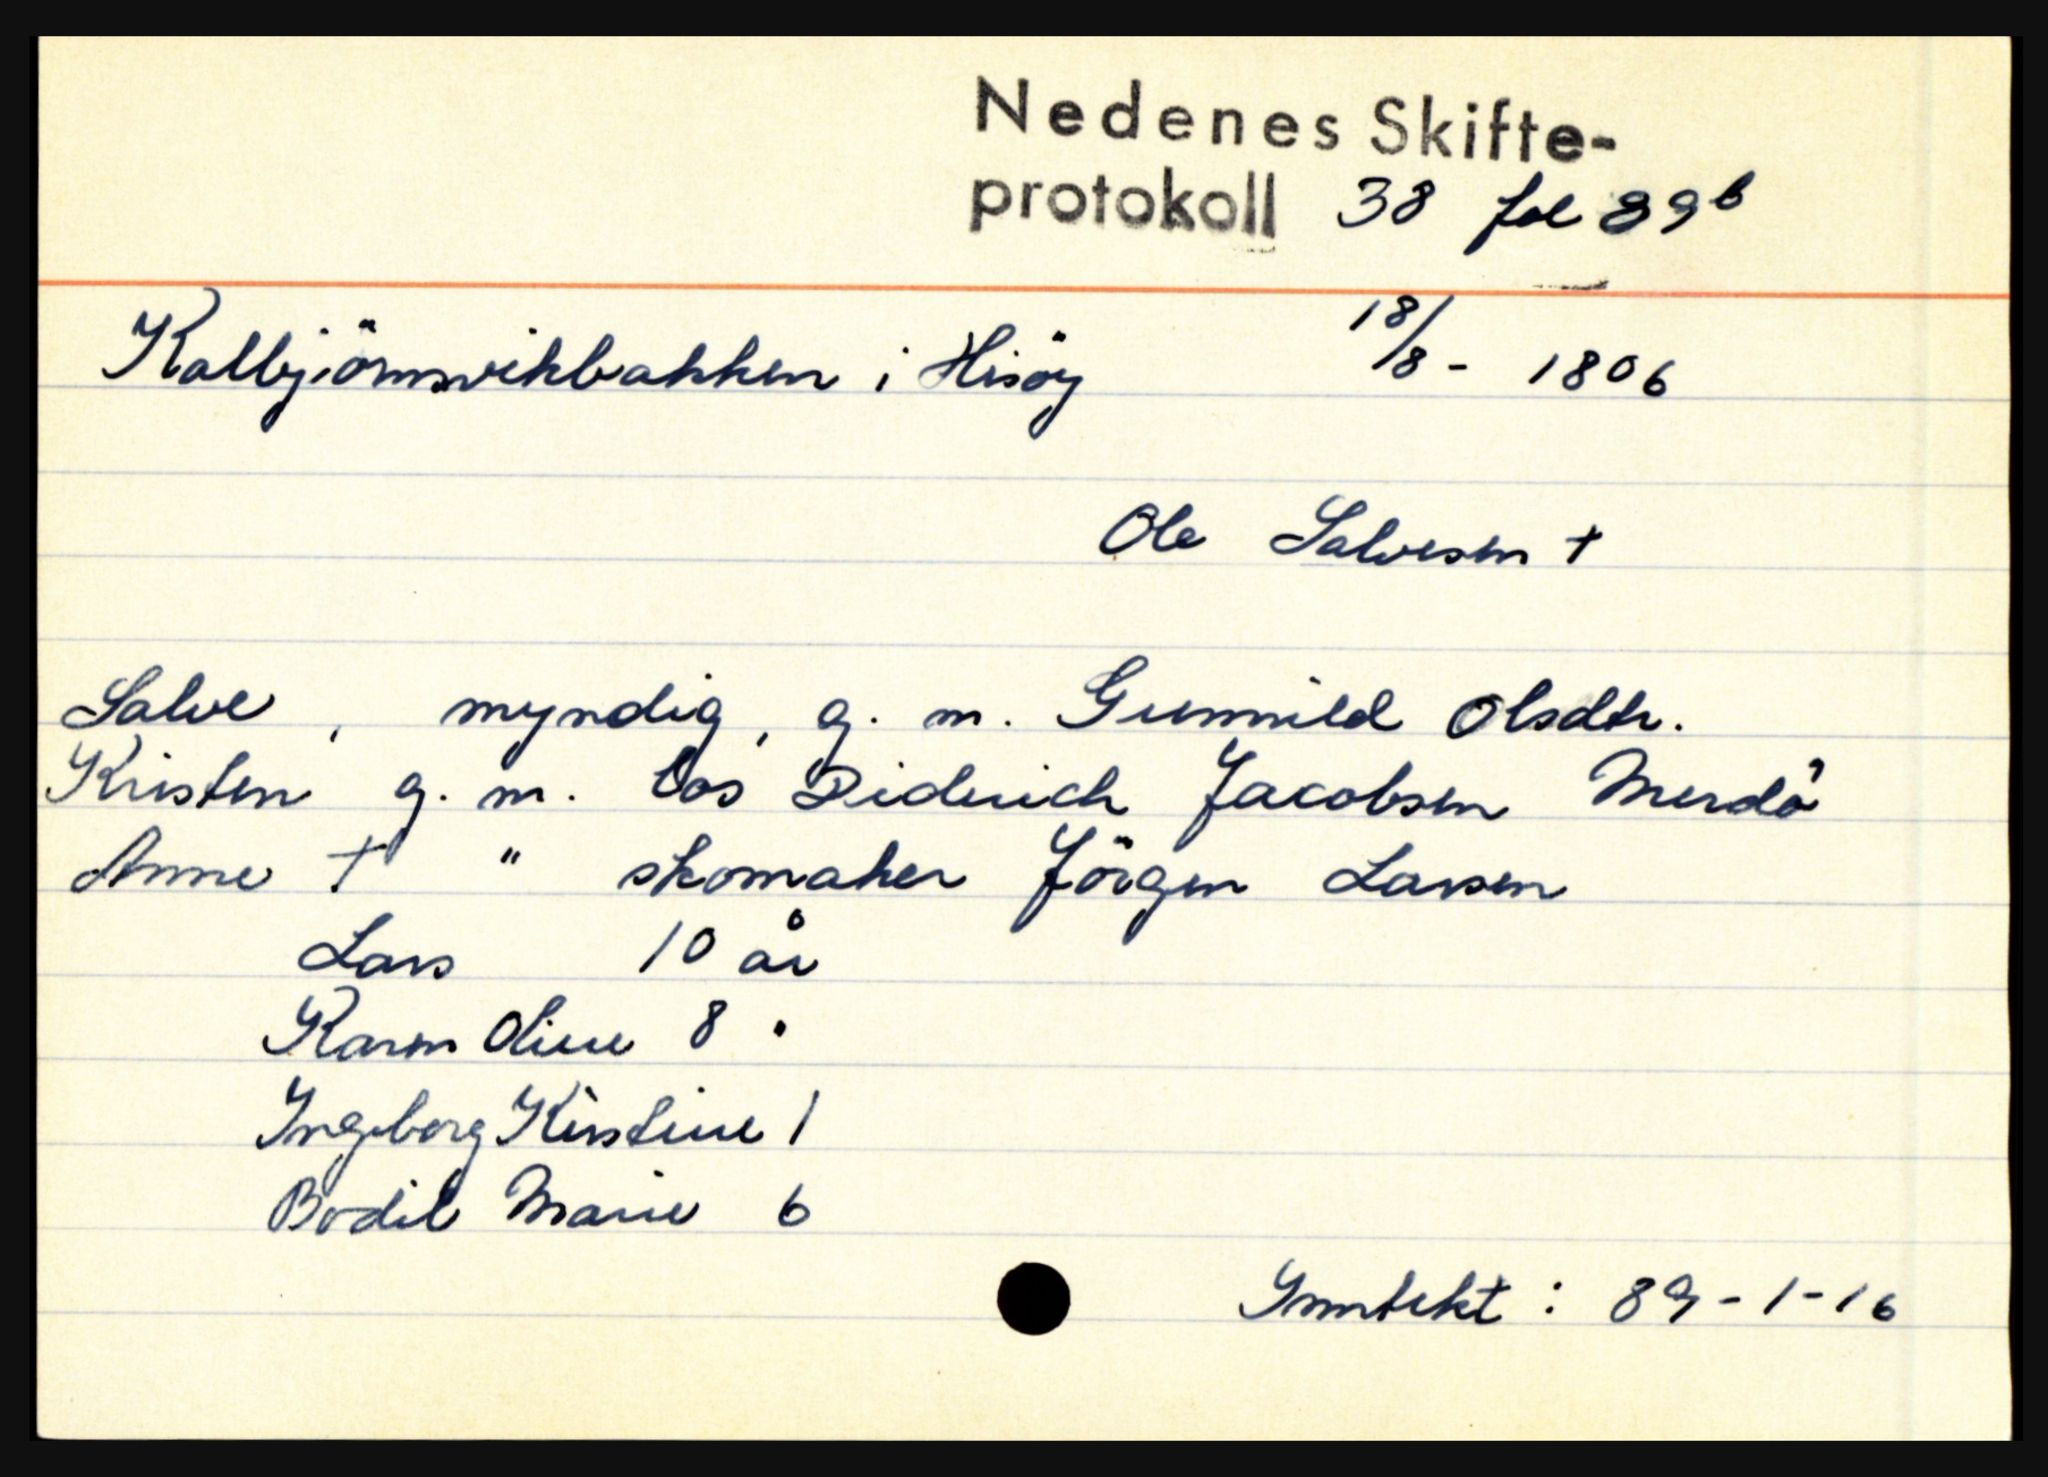 Nedenes Skifte-
protokoll 38 fol 89b
Kolbjörnsvikbakken i Hisöy 18/8 - 1806
Ole Salvesen +
Salve, myndig, g. m. Gunnild Olsdtr.
Kristen g. m. los Diderich Jacobsen Merdö
Anne + " skomaker Jörgen Larsen
Lars 10 år
Karen Oline 8 "
Ingeborg Kirstine 1
Bodil Marie 6
Inntekt : 89-1-16